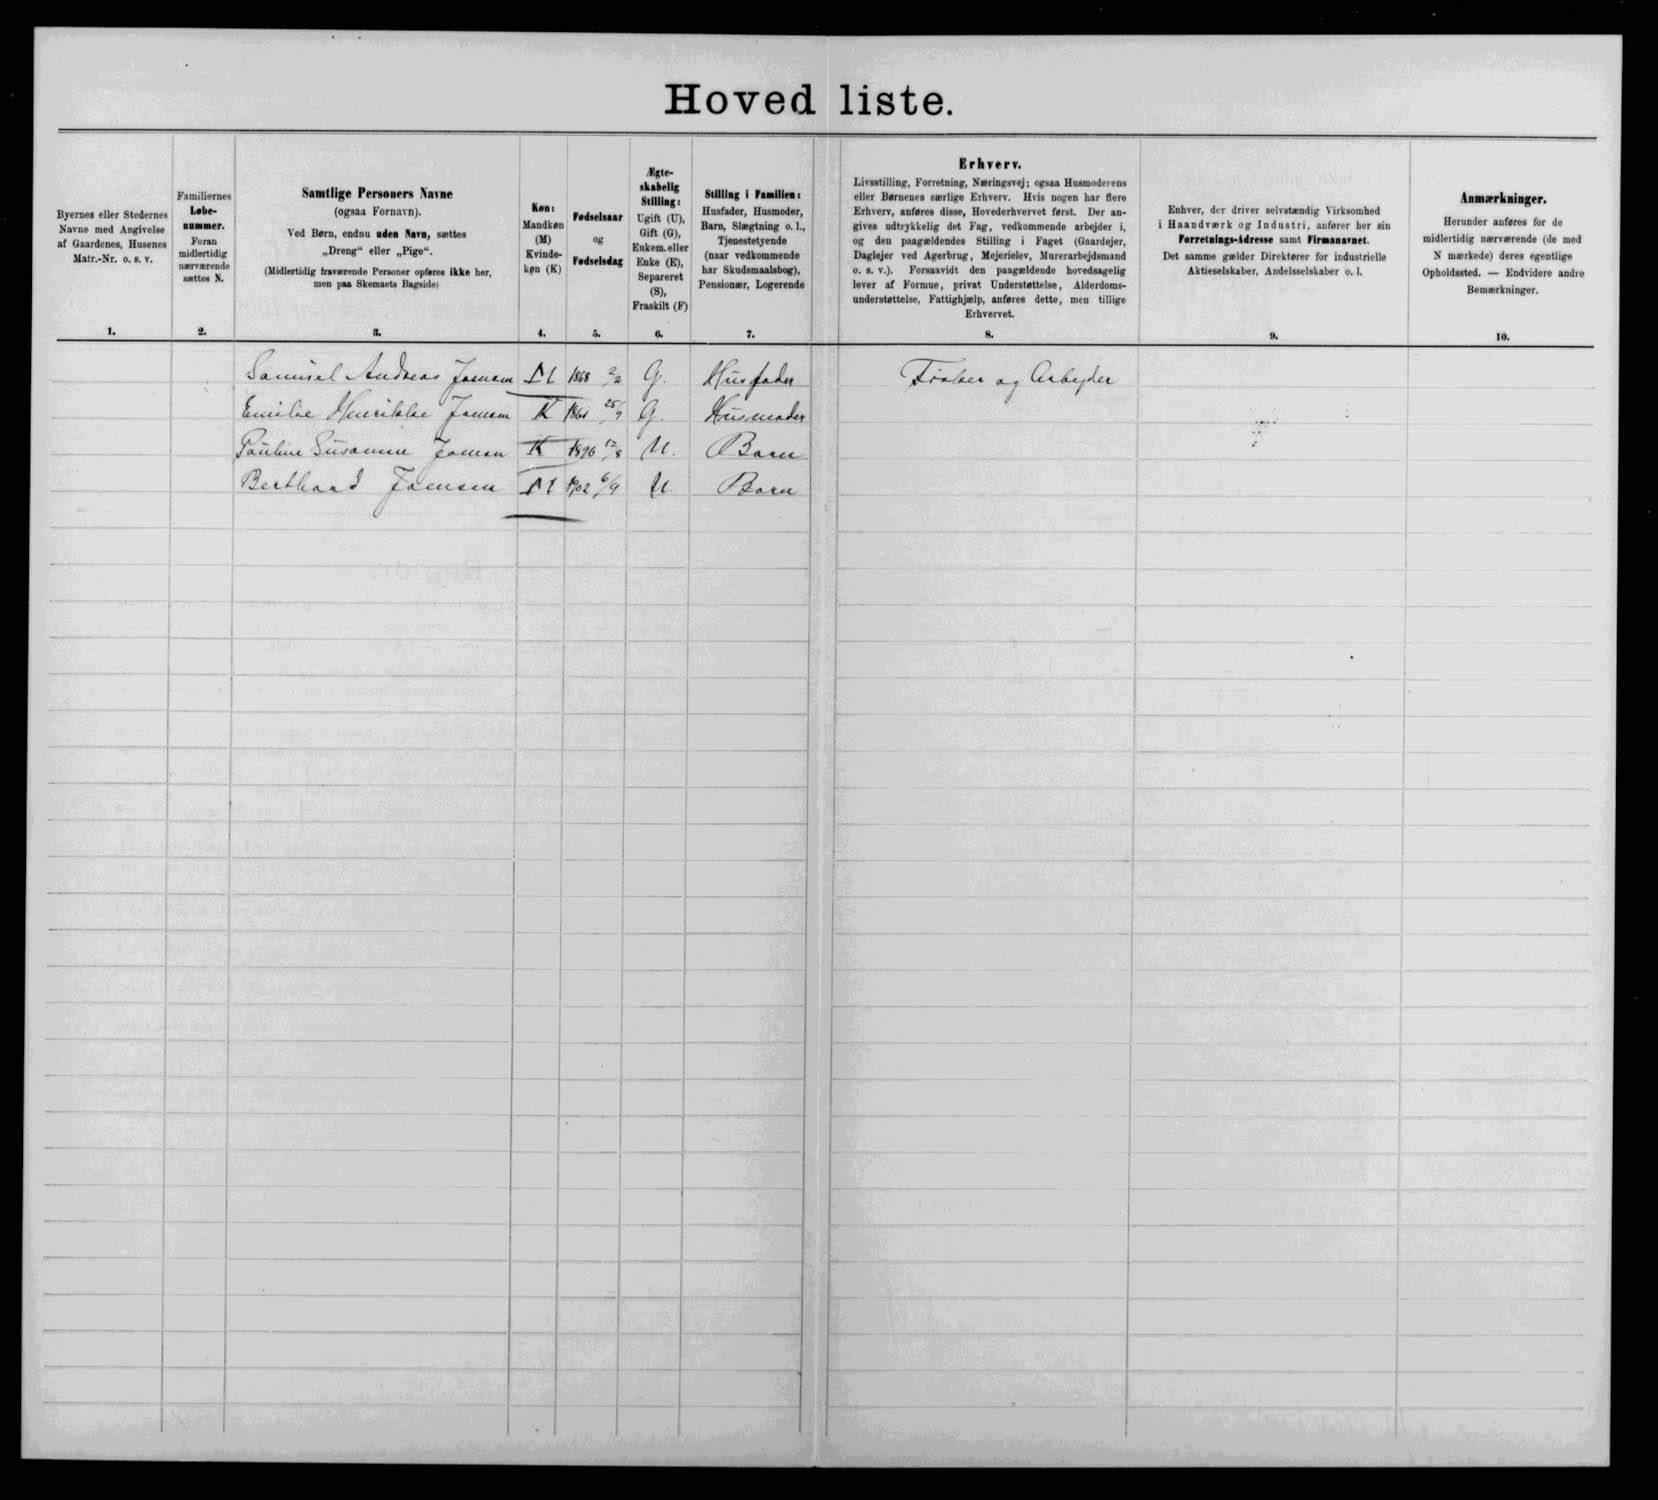 Hoved liste.
Byernes eller Stedernes
Navne med Angivelse
af Gaardenes, Husenes
Matr.-Nr. o. s. v.
1.
Familiernes
Løbe-
nummer.
Foran
midlertidig
nærværende
sættes N.
2.
Samtlige Personers Navne
(ogsaa Fornavn).
Ved Børn, endnu uden Navn, sættes
„Dreng“ eller „Pige“.
(Midlertidig fraværende Personer opføres ikke her,
men paa Skemaets Bagside)
3.
Køn:
Mandkøn
(M)
Kvinde-
køn (K)
4.
Fødselsaar
og
Fødselsdag
5.
Ægte-
skabelig
Stilling:
Ugift (U),
Gift (G),
Enkem. eller
Enke (E),
Separeret
(S),
Fraskilt (F)
6.
Stilling i Familien:
Husfader, Husmoder,
Barn, Slægtning o. l.,
Tjenestetyende
(naar vedkommende
har Skudsmaalsbog),
Pensionær, Logerende
7.
Erhverv.
Livsstilling, Forretning, Næringsvej; ogsaa Husmoderens
eller Børnenes særlige Erhverv. Hvis nogen har flere
Erhverv, anføres disse, Hovederhvervet først. Der an-
gives udtrykkelig det Fag, vedkommende arbejder i,
og den paagældendes Stilling i Faget (Gaardejer,
Daglejer ved Agerbrug, Mejerielev, Murerarbejdsmand
o. s. v.). Forsaavidt den paagældende hovedsagelig
lever af Formue, privat Understøttelse, Alderdoms-
understøttelse, Fattighjælp, anføres dette, men tillige
Erhvervet.
8.
Enhver, der driver selvstændig Virksomhed
i Haandværk og Industri, anfører her sin
Forretnings-Adresse samt Firmanavnet.
Det samme gælder Direktører for industrielle
Aktieselskaber, Andelsselskaber o. l.
9.
Anmærkninger.
Herunder anføres for de
midlertidig nærværende (de med
N mærkede) deres egentlige
Opholdssted. — Endvidere andre
Bemærkninger.
10.
Samuel Andreas Joensen M 1868 2/2 G. Husfader Fisker og Arbejder
Emilie Henrikke Joensen K 25/7 G. Husmoder
Pauline Susanne Joensen K 1896 12/8 U. Barn
Berthard Joensen M 1902 6/9 U Barn